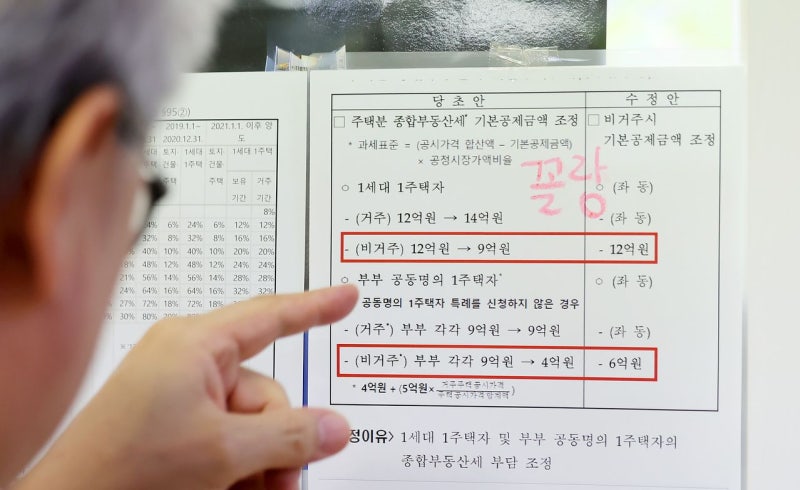 595②)
2019.1.1~
2020.12.31.
2021.1.1. 이후 양
도
토지·
건물·
주택
1세대
1주택
토지·
건물·
주택
1세대 1주택
보유
기간
거주
기간
8%
24% 6% 24% 6% 12% 12%
32% 8% 32% 8% 16% 16%
40% 10% 40% 10% 20% 20%
48% 12% 48% 12% 24% 24%
56% 14% 56% 14% 28% 28%
64% 16% 64% 16% 32%
27% 72% 18% 72% 18%
30% 80%
당초안 수정안
□ 주택분 종합부동산세* 기본공제금액 조정
* 과세표준 = (공시가격 합산액 - 기본공제금액)
× 공정시장가액비율
□ 비거주시
기본공제금액 조정
꼴랑
○ 1세대 1주택자 ○ (좌 동)
- (거주) 12억원 → 14억원 - (좌 동)
- (비거주) 12억원 → 9억원 - 12억원
○ 부부 공동명의 1주택자* ○ (좌 동)
공동명의 1주택자 특례를 신청하지 않은 경우
- (거주*) 부부 각각 9억원 → 9억원 - (좌 동)
- (비거주*) 부부 각각 9억원 → 4억원 - 6억원
* 4억원 + (5억원× 거주주택공시가격 / 주택공시가격합계액 )
정이유> 1세대 1주택자 및 부부 공동명의 1주택자의
종합부동산세 부담 조정